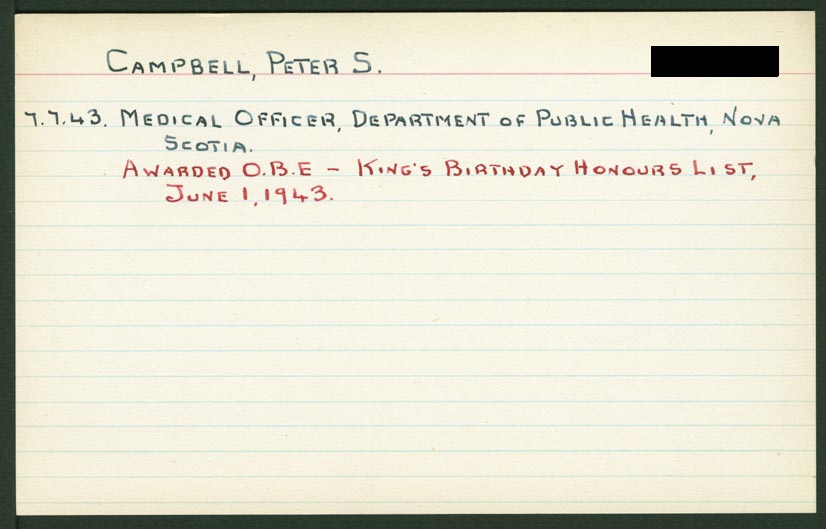 CAMPBELL, PETER S.
7.7.43. MEDICAL OFFICER, DEPARTMENT OF PUBLIC HEALTH, NOVA
SCOTIA.
AWARDED O.B.E – KING'S BIRTHDAY HONOURS LIST,
JUNE 1, 1943.